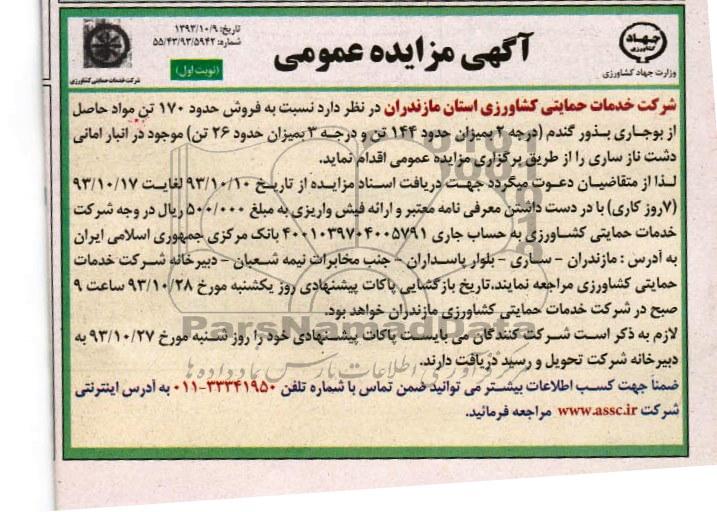 جهاد
کشاورزی
وزارت جهاد کشاورزی
آگهی مزایده عمومی
تاریخ: ۱۳۹۳/۱۰/۹
شماره: ۵۵/۴۳/۹۳/۵۹۴۲
(نوبت اول)
شرکت خدمات حمایتی کشاورزی
شرکت خدمات حمایتی کشاورزی استان مازندران در نظر دارد نسبت به فروش حدود ۱۷۰ تن مواد حاصل
از بوجاری بذور گندم (درجه ۲ بمیزان حدود ۱۴۴ تن و درجه ۳ بمیزان حدود ۲۶ تن) موجود در انبار امانی
دشت ناز ساری را از طریق برگزاری مزایده عمومی اقدام نماید.
لذا از متقاضیان دعوت میگردد جهت دریافت اسناد مزایده از تاریخ ۹۳/۱۰/۱۰ لغایت ۹۳/۱۰/۱۷
(۷روز کاری) با در دست داشتن معرفی نامه معتبر و ارائه فیش واریزی به مبلغ ۵۰۰/۰۰۰ ریال در وجه شرکت
خدمات حمایتی کشاورزی به حساب جاری ۴۰۰۱۰۳۹۷۰۴۰۰۵۷۹۱ بانک مرکزی جمهوری اسلامی ایران
به آدرس : مازندران - ساری - بلوار پاسداران - جنب مخابرات نیمه شعبان - دبیرخانه شرکت خدمات
حمایتی کشاورزی مراجعه نمایند.تاریخ بازگشایی پاکات پیشنهادی روز یکشنبه مورخ ۹۳/۱۰/۲۸ ساعت ۹
صبح در شرکت خدمات حمایتی کشاورزی مازندران خواهد بود.
لازم به ذکر است شرکت کنندگان می بایست پاکات پیشنهادی خود را روز شنبه مورخ ۹۳/۱۰/۲۷ به
دبیرخانه شرکت تحویل و رسید دریافت دارند.
ضمناً جهت کسب اطلاعات بیشتر می توانید ضمن تماس با شماره تلفن ۳۳۳۴۱۹۵۰-۰۱۱ به آدرس اینترنتی
شرکت www.assc.ir مراجعه فرمائید.
ParsNamadData